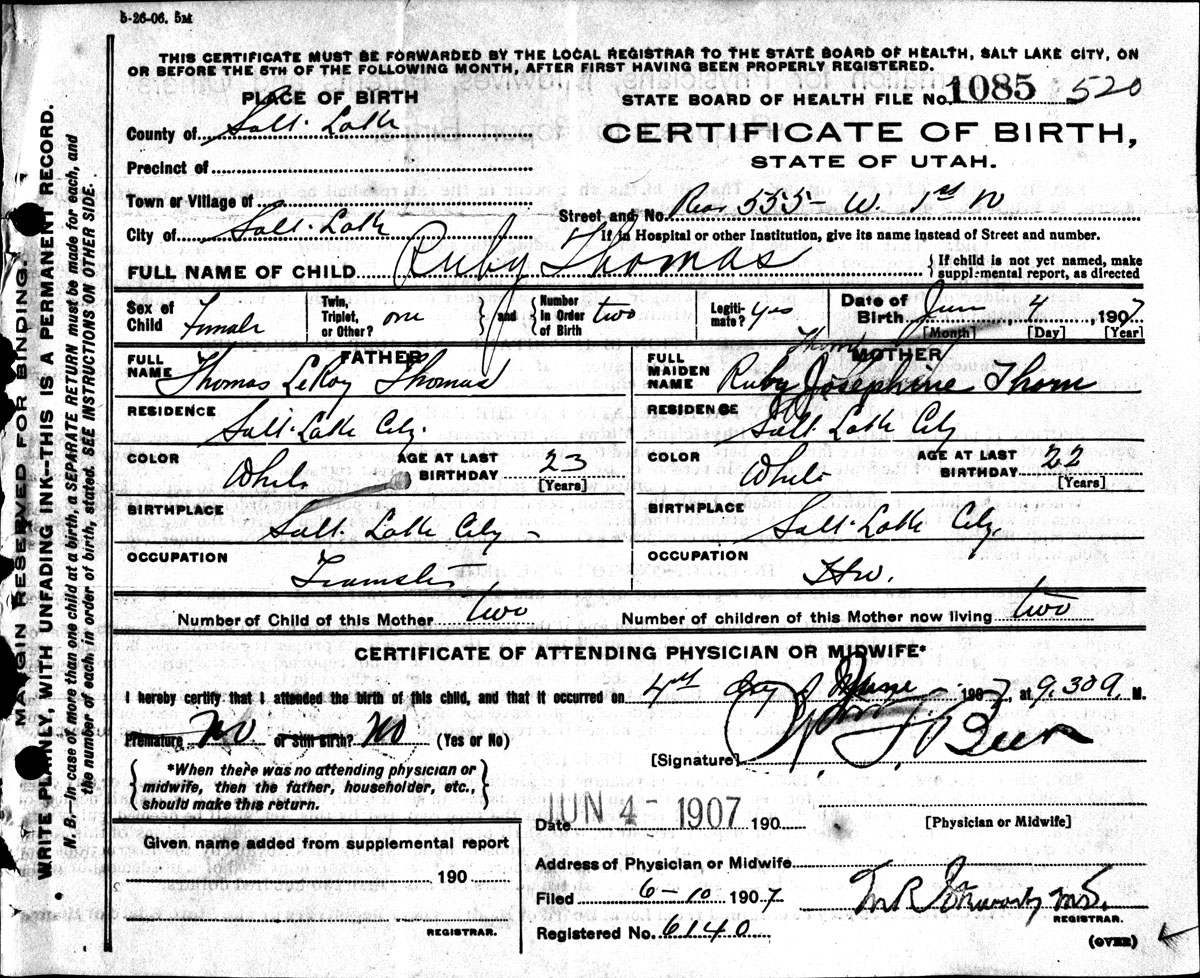 5-26-06. 5M
THIS CERTIFICATE MUST BE FORWARDED BY THE LOCAL REGISTRAR TO THE STATE BOARD OF HEALTH, SALT LAKE CITY, ON
OR BEFORE THE 5TH OF THE FOLLOWING MONTH, AFTER FIRST HAVING BEEN PROPERLY REGISTERED.
MARGIN RESERVED FOR BINDING.
WRITE PLAINLY, WITH UNFADING INK--THIS IS A PERMANENT RECORD.
N. B.—In case of more than one child at a birth, a SEPARATE RETURN must be made for each, and
the number of each in order of birth, stated. SEE INSTRUCTIONS ON OTHER SIDE.
PLACE OF BIRTH
County of Salt Lake
Precinct of
Town or Village of
City of Salt Lake
STATE BOARD OF HEALTH FILE No. 1085 520
CERTIFICATE OF BIRTH,
STATE OF UTAH.
Street and No. Rear 555 W. 1st N
If in Hospital or other Institution, give its name instead of Street and number.
FULL NAME OF CHILD Ruby Thomas
{If child is not yet named, make
supplemental report, as directed
Sex of Child Female
Twin, Triplet, or Other? one
{and} Number in Order of Birth two
Legitimate? yes
Date of Birth June 4, 1907
[Month] [Day] [Year]
FATHER
FULL NAME Thomas LeRoy Thomas
RESIDENCE Salt Lake City.
COLOR White
AGE AT LAST BIRTHDAY 23
[Years]
BIRTHPLACE Salt Lake City
OCCUPATION Teamster
MOTHER
FULL MAIDEN NAME Ruby Josephine Thorn
RESIDENCE Salt Lake City
COLOR White
AGE AT LAST BIRTHDAY 22
[Years]
BIRTHPLACE Salt Lake City.
OCCUPATION Hw.
Number of Child of this Mother two
Number of children of this Mother now living two
CERTIFICATE OF ATTENDING PHYSICIAN OR MIDWIFE*
I hereby certify that I attended the birth of this child, and that it occurred on 4th Day of June 1907, at 9.30 M.
Premature No or Still Birth? No (Yes or No)
[Signature] Beer
{*When there was no attending physician or
midwife, then the father, householder, etc.,
should make this return.}
JUN 4 - 1907
Date 190
[Physician or Midwife]
Given name added from supplemental report
190
REGISTRAR.
Address of Physician or Midwife
Filed 6-10 1907
Registered No. 6140
REGISTRAR.
(OVER)